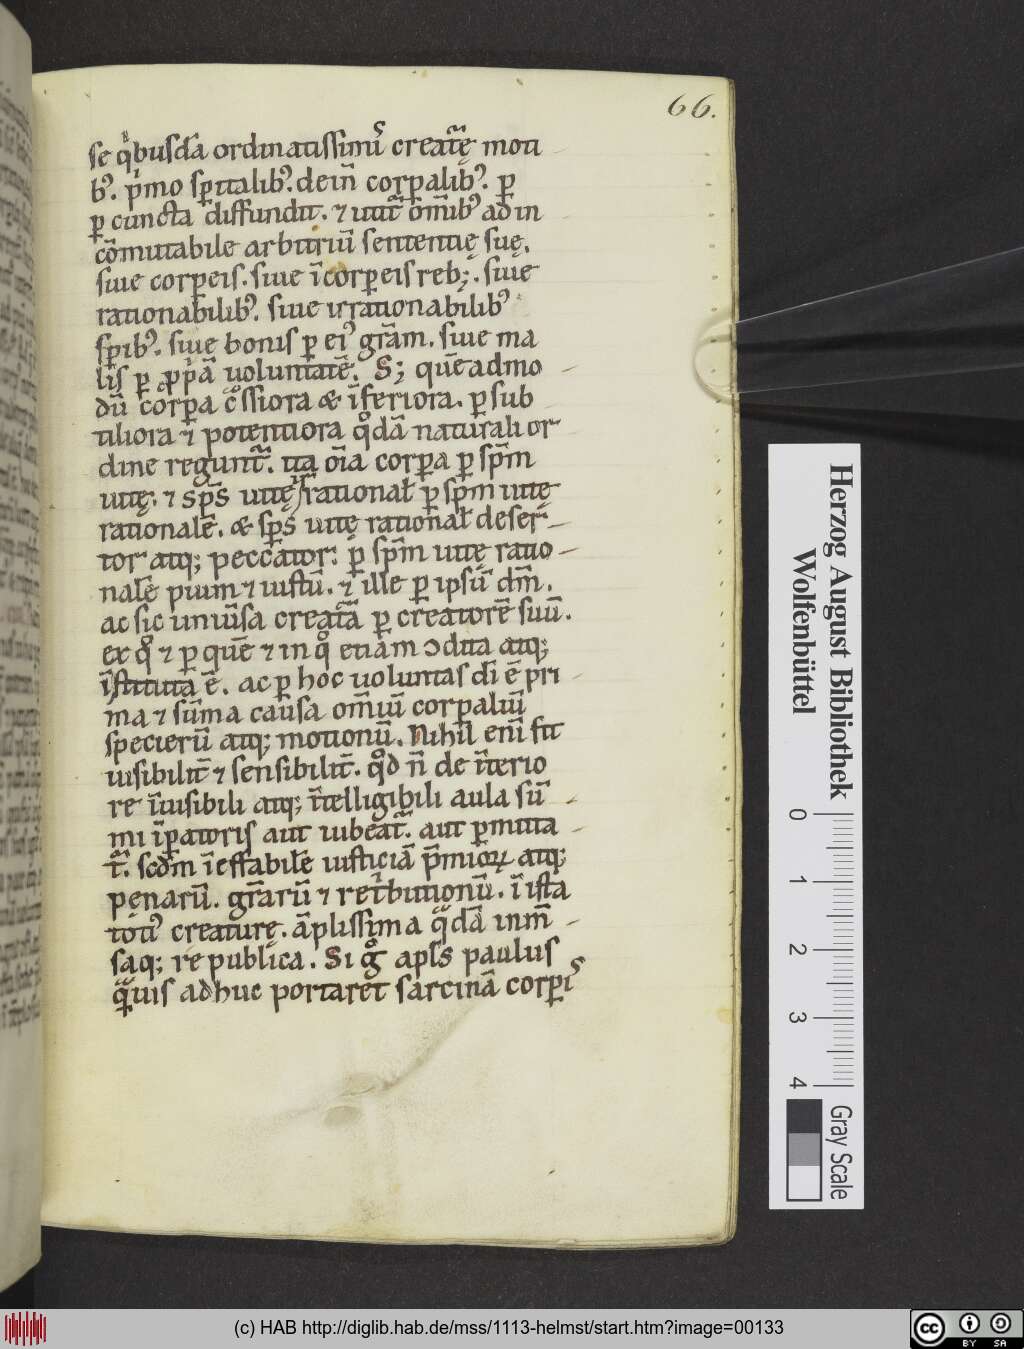 66.
se qͥbusdā ordinatissimiˢ creatᷓę moti
bꝰ. pͥmo sp̄italibꝰ. dein̄ corꝑalibꝰ. ꝑ
ꝑ cuncta diffundit. ⁊ utit᷑ om̄ibꝰ ad in
cōmutabile arbitriū sententię suę.
siue corꝑeis. siue īcorꝑeis reb;. siue
rationabilibꝰ. siue irrationabilibꝰ
sp̄ibꝰ. siue bonis ꝑ eiꝰ gr̄am. siue ma
lis ꝑ ꝓp̄ā uoluntatē. S; quēadmo
dū corꝑa cͣssiora & īferiora. ꝑ sub
tiliora ⁊ potentiora qͣdā naturali or
dine regunt᷑. ita oīa corꝑa ꝑ sp̄m
uitę. ⁊ sp̄s̄ uitę irrational̄ ꝑ sp̄m uitę
rationalē. & sp̄s̄ uitę rational̄ deser
tor atq; peccator. ꝑ sp̄m uitę ratio
nalē pium ⁊ iustū. ⁊ ille ꝑ ipsū dm̄.
ac sic uniūsa creatᷓa ꝑ creatorē suū.
ex qͦ ⁊ ꝑ quē ⁊ in qͦ etiam ↄdita atq;
īstituta ē. ac ꝑ hoc uoluntas dī ē pri
ma ⁊ sūma causa om̄iū corꝑaliū
specierū atq; motionū. Nihil enī fit
uisibilit̄ ⁊ sensibilit̄. qͦd n̄ de īterio
re īuisibili atq; ītelligibili aula sū
mi īꝑatoris aut iubeat᷑. aut ꝑmitta
t᷑. scd̄m īeffabilē iusticiā p̄mioꝝ atq;
penarū. gr̄arū ⁊ retͥbutionū. ī ista
totiꝰ creaturę. āplissima qͣdā inm̄
saq; re publica. Si gͦ apl̄s paulus
qͣ̄uis adhuc portaret sarcinā corꝑiˢ
Herzog August Bibliothek
Wolfenbüttel
0
1
2
3
4
Gray Scale
(c) HAB http://diglib.hab.de/mss/1113-helmst/start.htm?image=00133
cc
BY SA